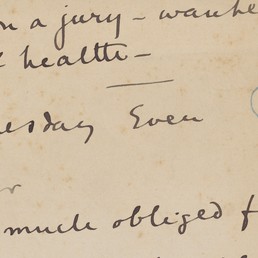 on a jury -
health -
esday Even
much obliged f